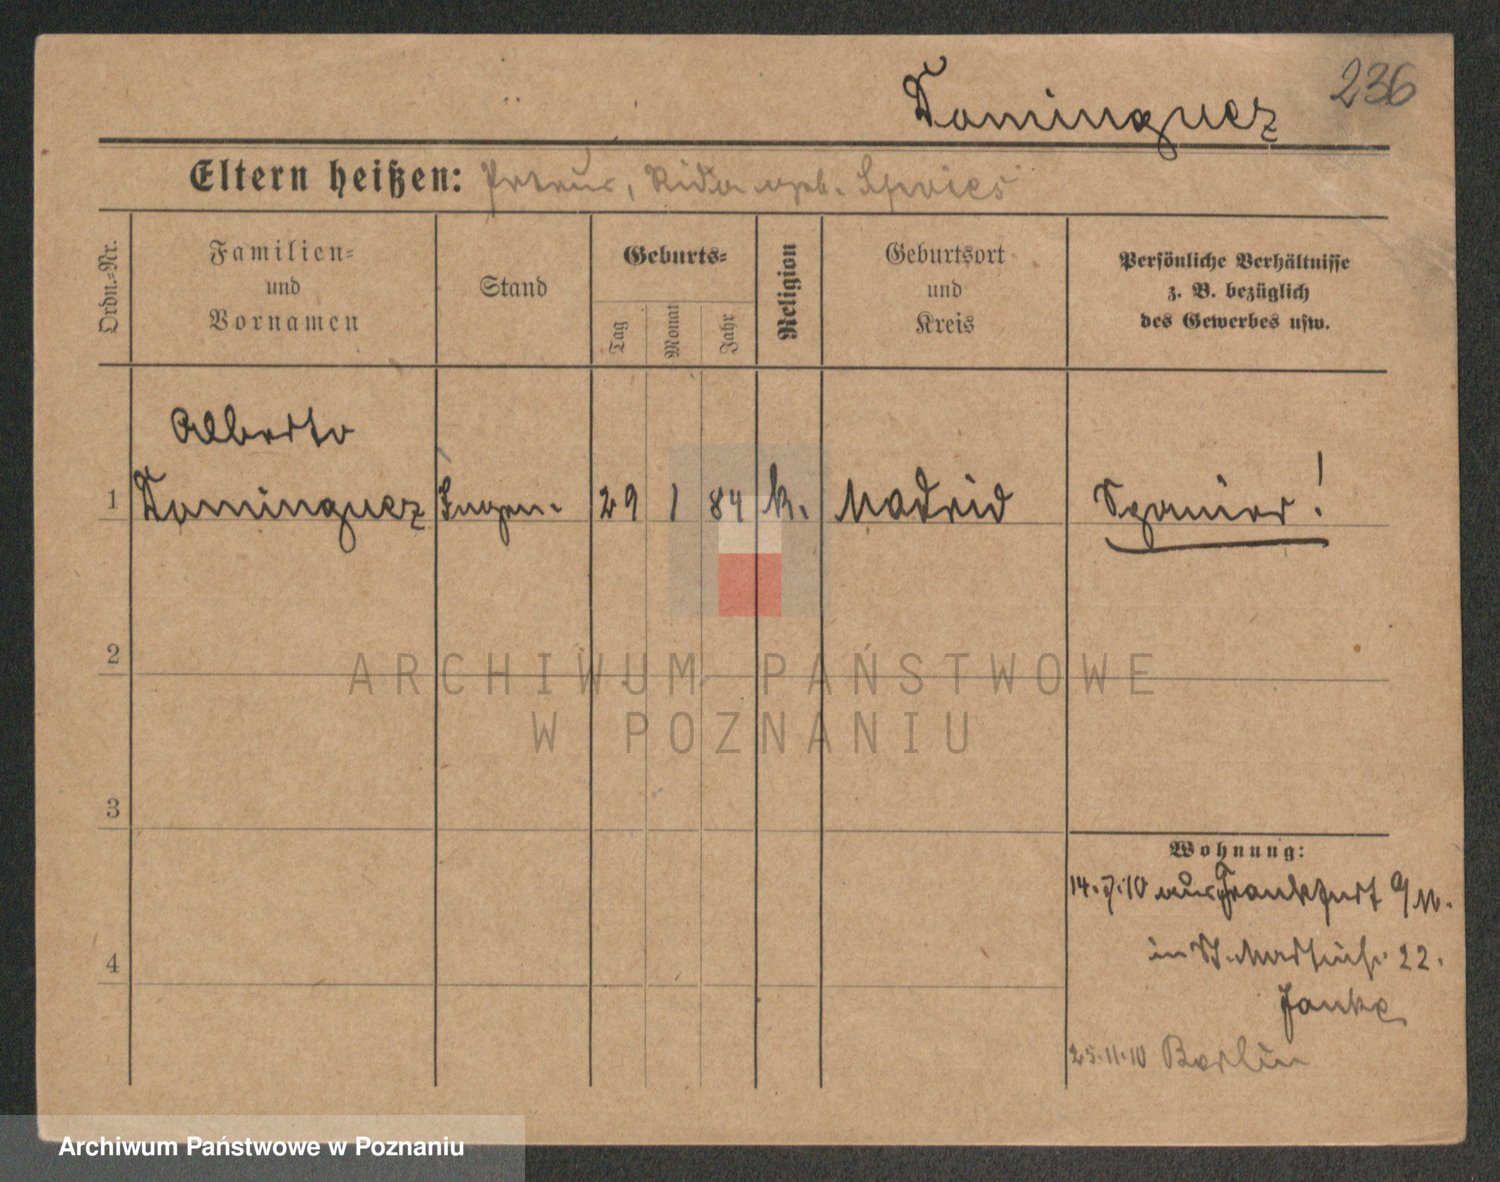 236
Dominguez
Eltern heißen: geb.
Ordn.-Nr.
Familien-
und
Vornamen
Stand
Geburts-
Tag
Monat
Jahr
Religion
Geburtsort
und
Kreis
Persönliche Verhältnisse
z. B. bezüglich
des Gewerbes usw.
Alberto
1 Dominguez Ingen. 29 1 84 k. Madrid Spanier!
2
3
4
Wohnung:
14.7.10 aus Frankfurt a/M.
in St. Martinstr. 22.
Janke
25.11.10 Berlin
ARCHIWUM PAŃSTWOWE
W POZNANIU
Archiwum Państwowe w Poznaniu